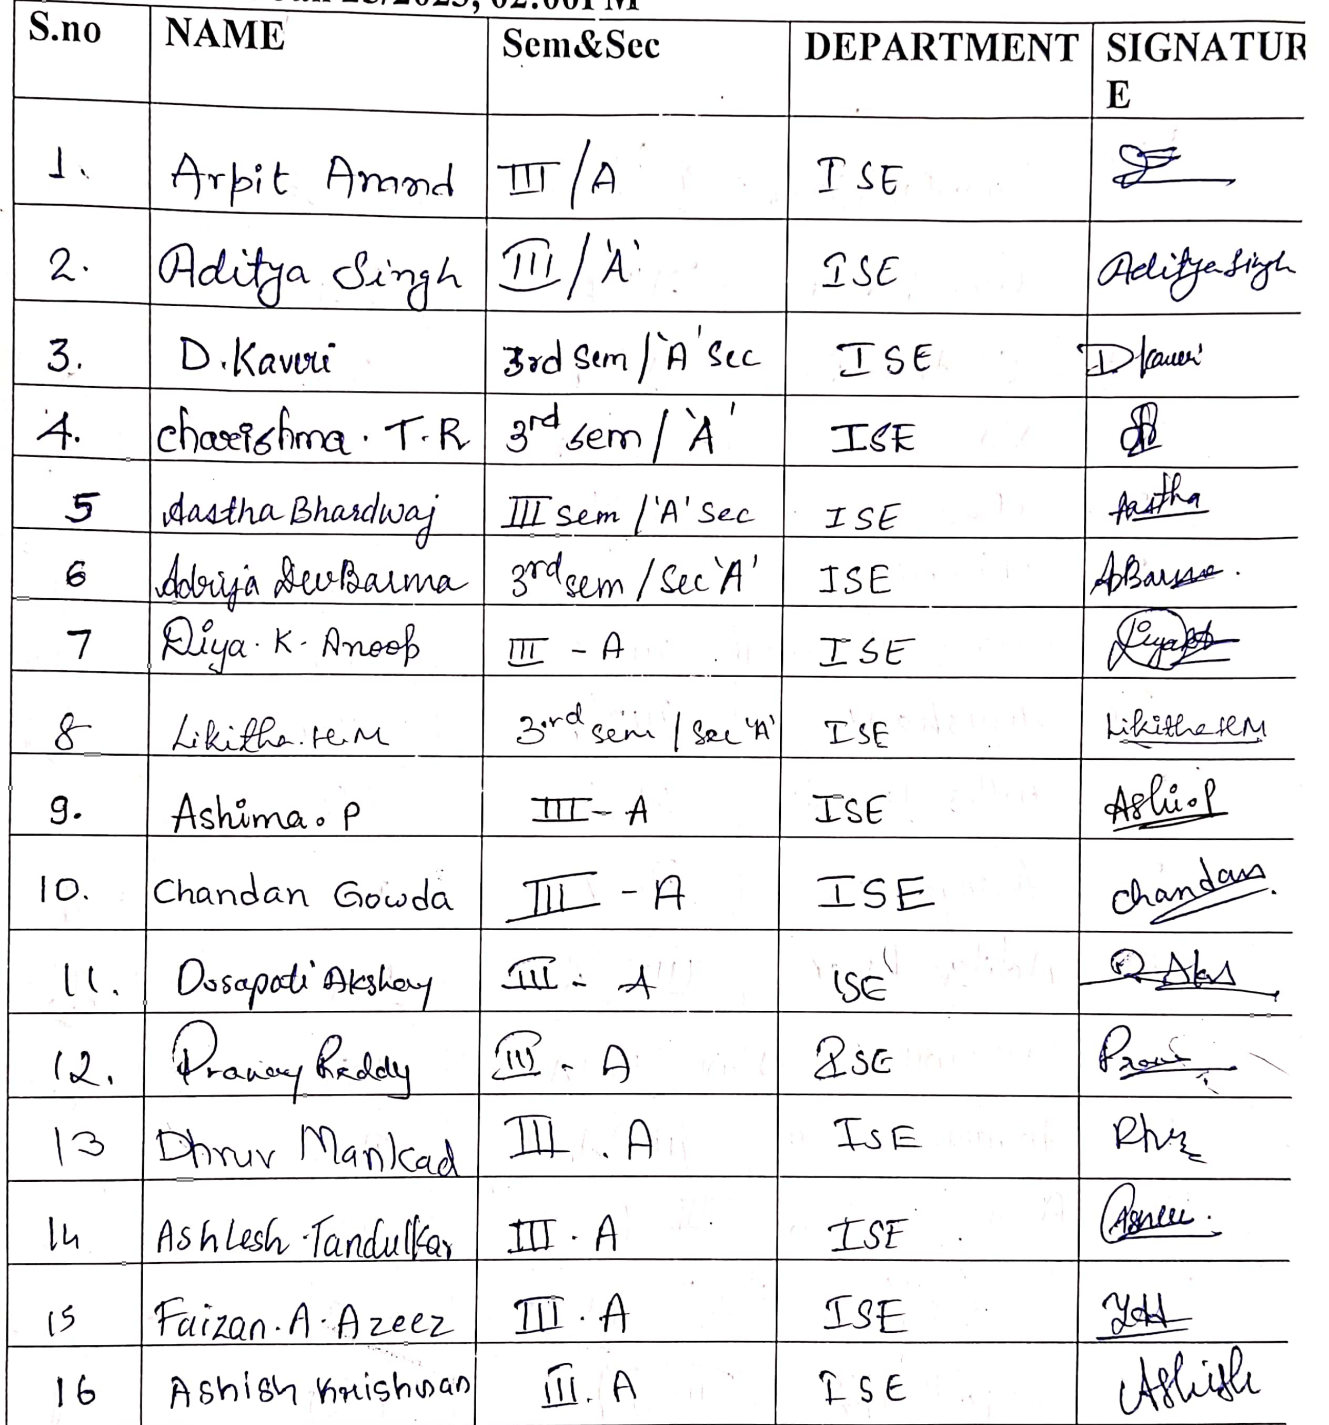 S.no NAME Sem&Sec DEPARTMENT SIGNATUR
E
1. Arpit Anand III/A ISE
2. Aditya Singh III/'A' ISE Aditya Singh
3. D.Kaveri 3rd Sem/'A' Sec ISE DKaveri
4. charishma. T.R 3rd sem/'A' ISE
5 Aastha Bhardwaj III sem/'A' Sec ISE Aastha
6 Adrija DevBarma 3rd sem/Sec 'A' ISE
7 Diya. K. Anoop III - A ISE
8 Likitha.H.M 3rd sem/Sec 'A' ISE Likitha HM
9. Ashima. P III - A ISE
10. Chandan Gowda III - A ISE chandan
11. Dosapati Akshay III - A ISE
12. Pranay Reddy III - A ISE
13 Dhruv Mankad III . A ISE
14 Ashlesh Tandulkar III . A ISE
15 Faizan.A.Azeez III . A ISE
16 Ashish Krishnan III. A ISE Ashish